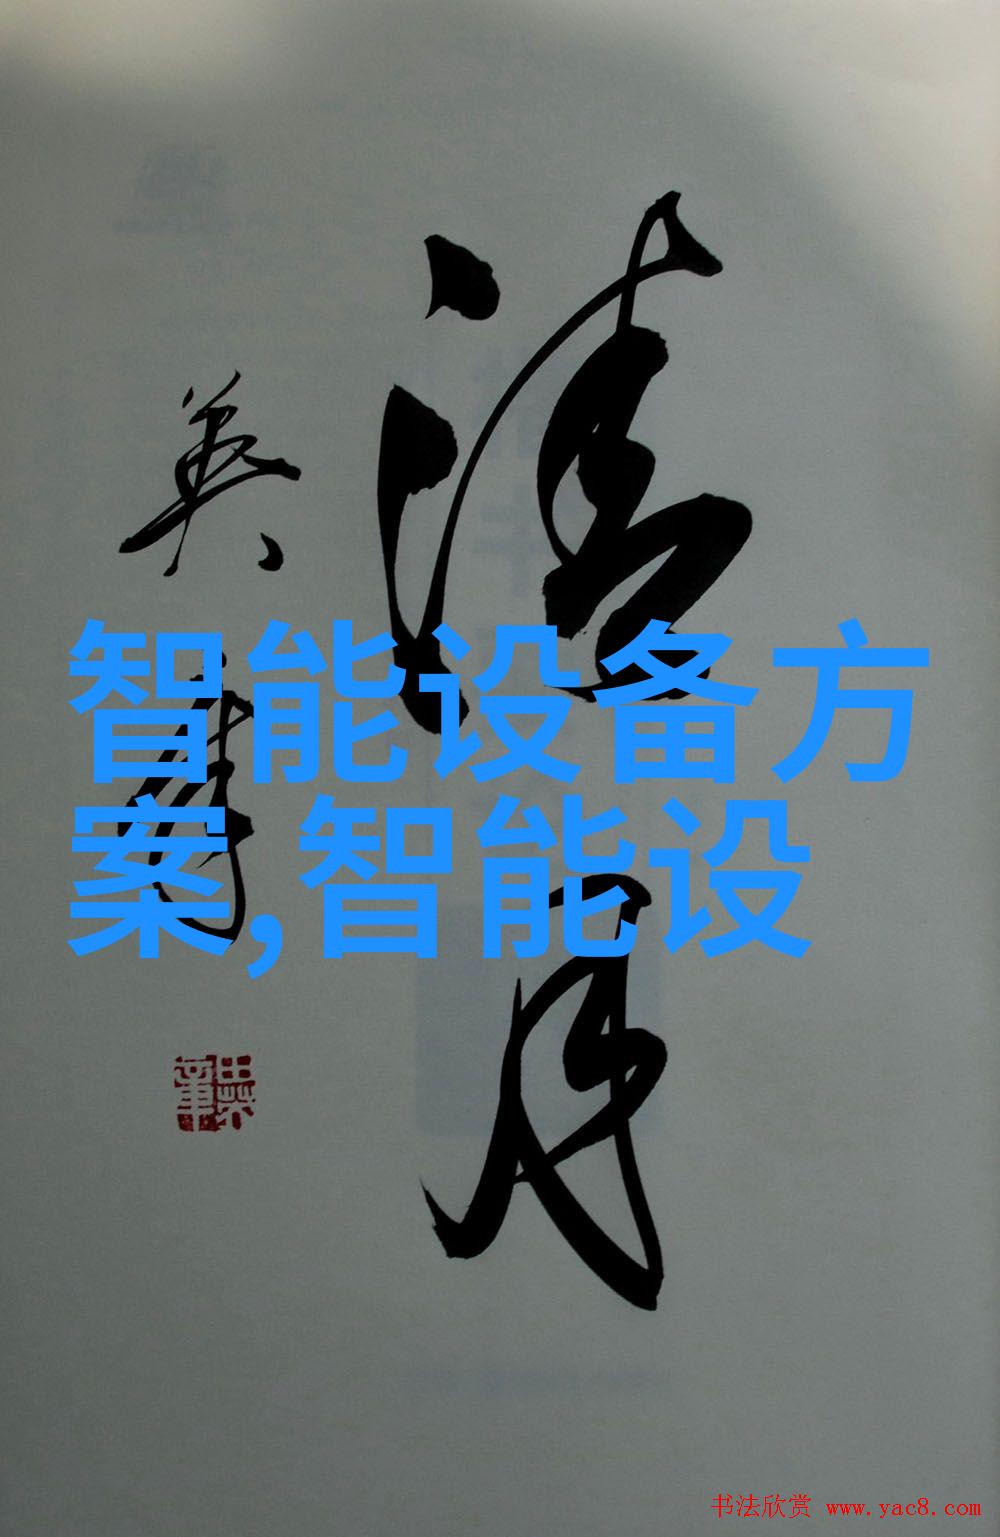 清月
英
智能设备方
案,智能设
书法欣赏 www.yac8.com